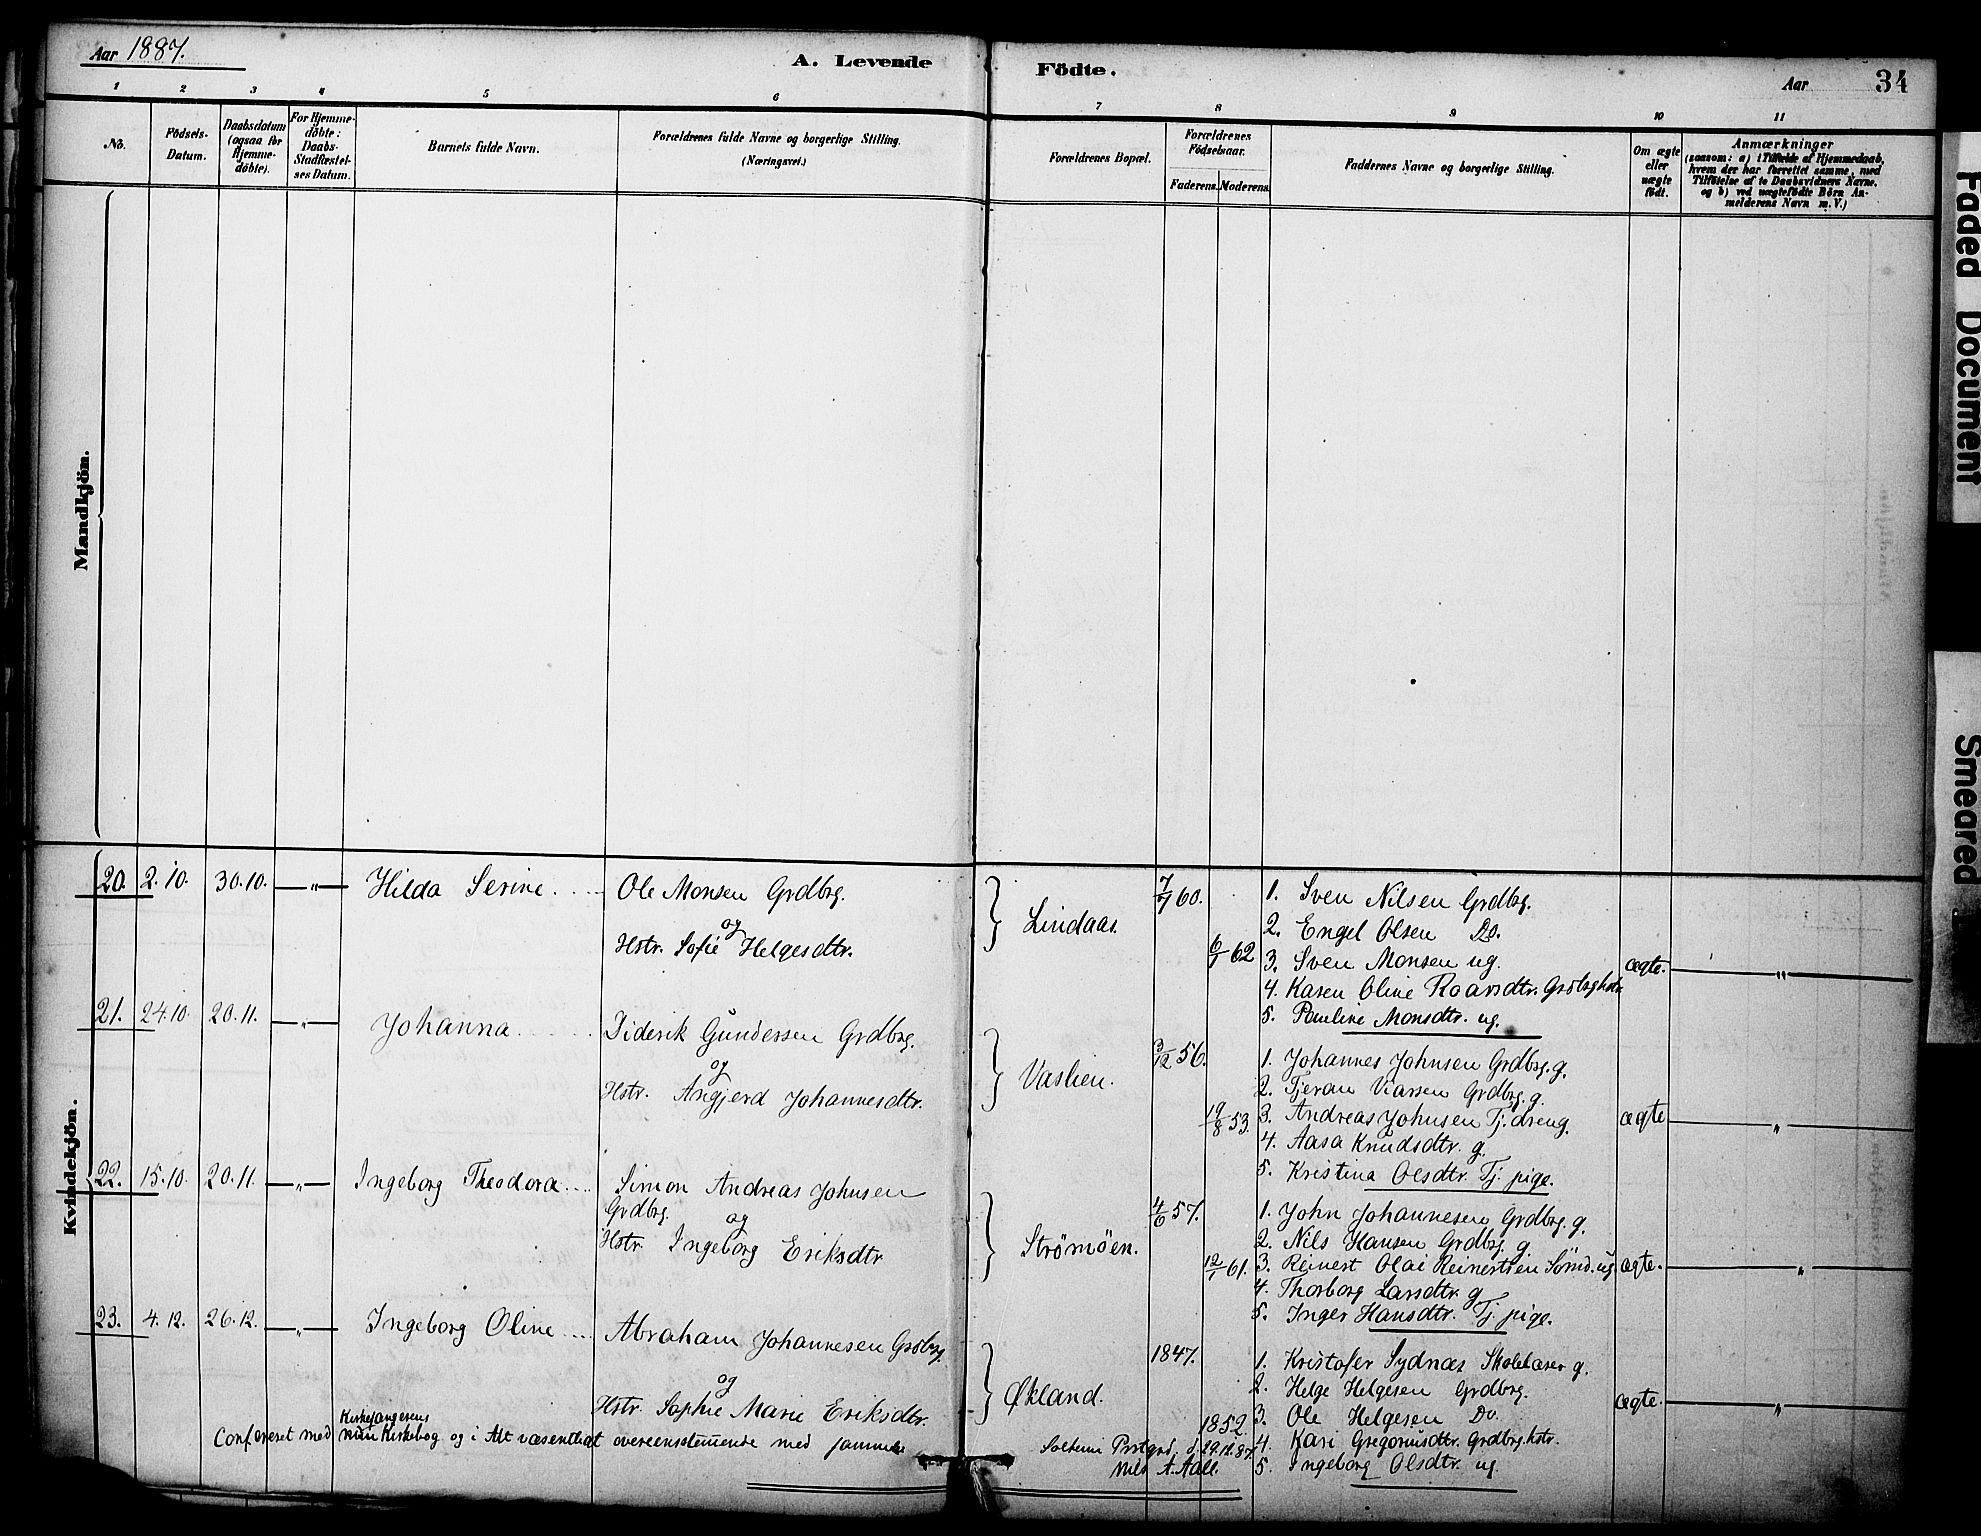 Aar 1887.
A. Levende Födte.
Aar
34
1 2 3 4 5 6 7 8 9 10 11
No.
Födsels-
Datum.
Daabsdatum
(ogsaa for
Hjemme-
döbte).
For Hjemme-
döbte:
Daabs-
Stadfæstel-
ses Datum.
Barnets fulde Navn.
Forældrenes fulde Navne og borgerlige Stilling.
(Næringsvei.)
Forældrenes Bopæl.
Forældrenes
Födselsaar.
Faderens. Moderens.
Faddernes Navne og borgerlige Stilling.
Om ægte
eller
uægte
födt.
Anmærkninger
(saasom: a) i Tilfælde af Hjemmedaab,
hvem der har forrettet samme, med
Tilföielse af to Daabsvidners Navne,
og b) ved uægtefödte Börn An-
melderens Navn m. V.)
Mandkjön.
Kvindekjön.
20. 2.10. 30.10. „ Hilda Serine. Ole Monsen Grdbrg.
og
Hstr. Sofie Helgesdtr.
Lindaas.
7/7 60.
6/1 62
1. Sven Nilsen Grdbrg.
2. Engel Olsen Do.
3. Sven Monsen ug.
4. Karen Oline Roarsdtr. Grdbrghstr.
5. Pauline Monsdtr. ug.
ægte. „
21. 24.10 20.11. „ Johanna Diderik Gundersen Grdbrg.
og
Hstr. Angjerd Johannesdtr.
Vaslien.
3/12 56.
19/8 53.
1. Johannes Johnsen Grdbrg. g.
2. Tjeran Viarsen Grdbrg. g.
3. Andreas Johnsen Tj. dreng.
4. Aasa Knudsdtr. g.
5. Kristina Olsdtr. Tj. pige.
ægte „
22. 15.10 20.11. „ Ingeborg Theodora Simon Andreas Johnsen
Grdbrg.
og
Hstr. Ingeborg Eriksdtr
Strømøen.
4/6 57.
12/1 61.
1. John Johannesen Grdbrg. g.
2. Nils Hansen Grdbrg. g.
3. Reinert Olai Reinertsen Sømd. ug.
4. Thorborg Larsdtr. g
5. Inger Hansdtr. Tj. pige.
ægte. „
23. 4.12. 26.12. „ Ingeborg Oline Abraham Johannesen Grdbrg.
og
Hstr. Sophie Marie Eriksdtr.
Økland.
1847.
1852.
1. Kristofer Sydnæs Skolelærer g.
2. Helge Helgesen Grdbrg.
3. Ole Helgesen Do.
4. Kari Gregoriusdtr. Grdbrg.hstr.
5. Ingeborg Olsdtr. ug.
ægte. „
Kirkesangerens
Confereret med Kirkebog og i Alt væsentligt overensstemmende med samme
Prstgrd. d. 29.12.87.
Nils A. Aall.
Faded Document
Smeared